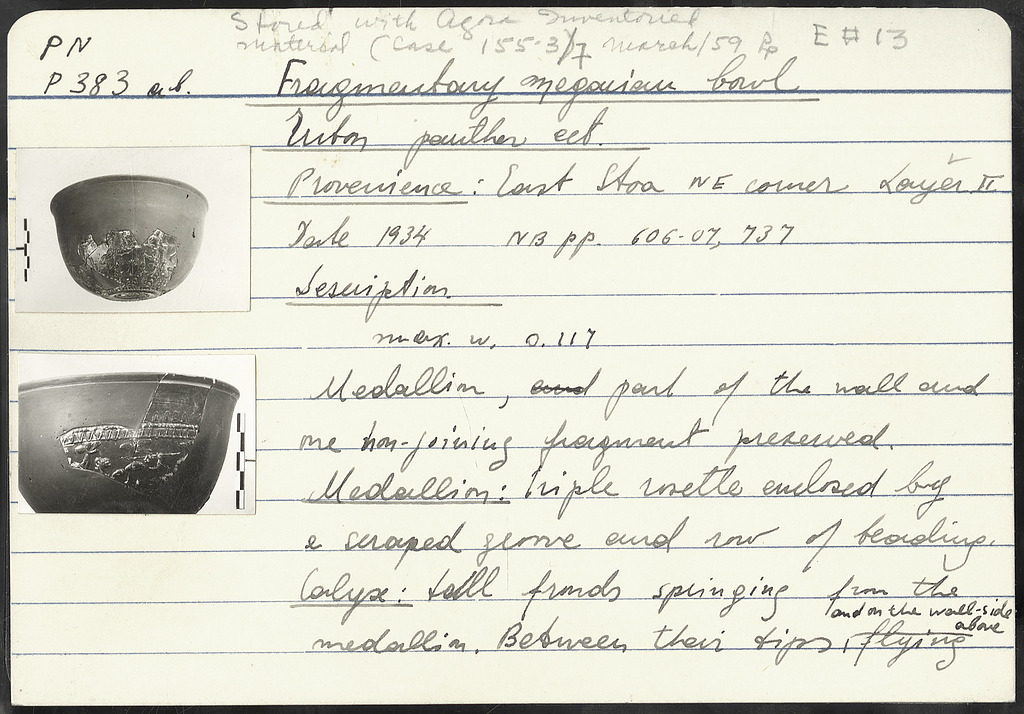 Stored with Agora Inventoried
material (Case 155-3) 7 March/59 E # 13
PN
P 383 a.b. Fragmentary megarian bowl
Eubon panther ect.
Provenience: East Stoa NE corner Layer II
Date 1934 NB pp. 606-07, 737
Description
max. w. 0.117
Medallion, and part of the wall and
one non-joining fragment preserved.
Medallion: triple rosette enclosed by
a scraped groove and row of beading.
Calyx: tall fronds springing from the
and on the wall-side above
medallion. Between their tips, flying